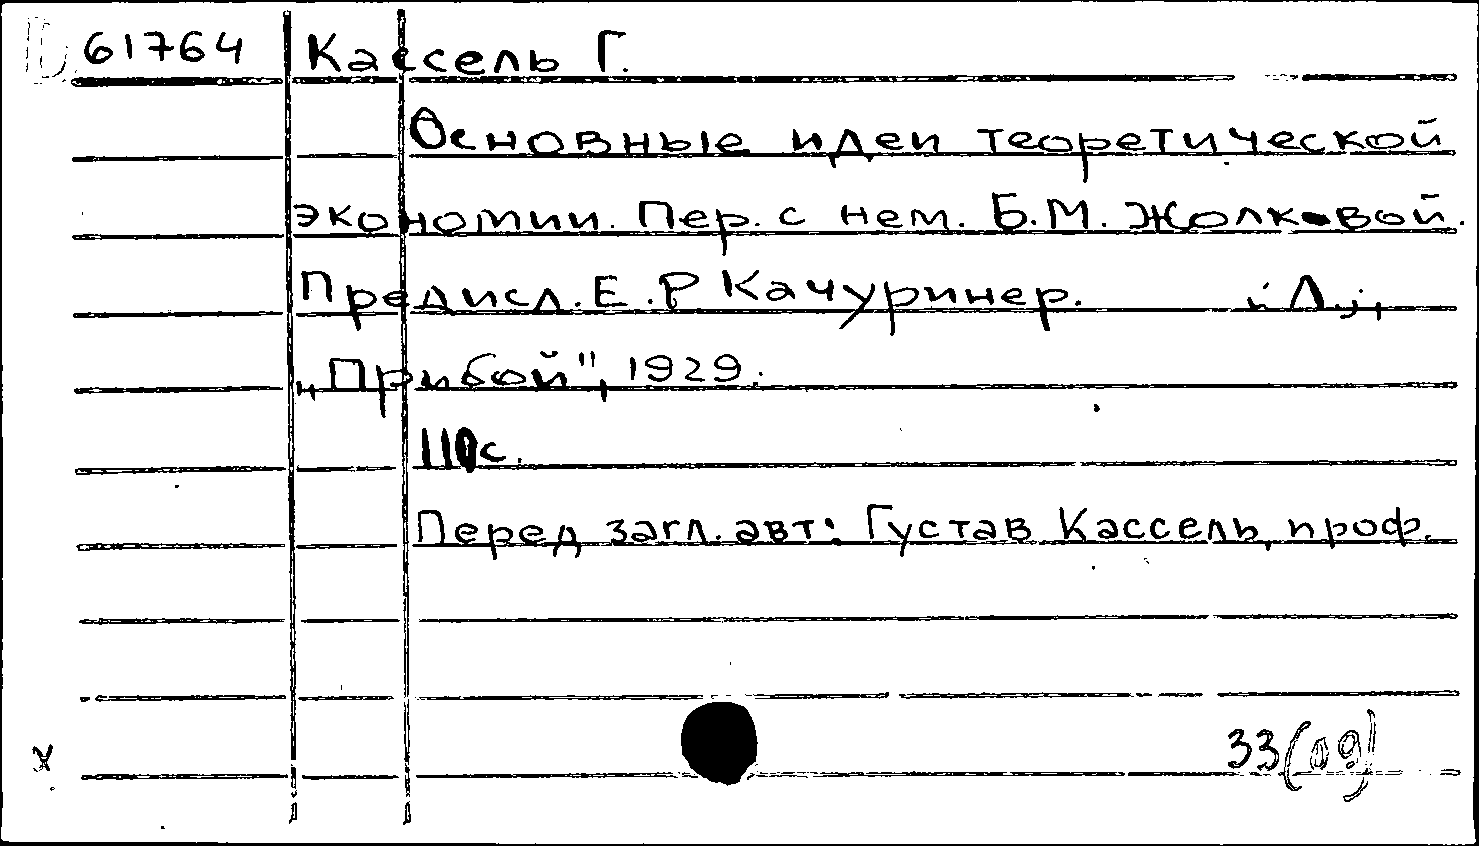 61764 Кассель Г.
Основные идеи теоретической
экономии. Пер. с нем. Б.М. Жолковой.
Предисл. Е.Р Качуринер. Л.,
„Прибой", 1929.
110с.
Перед загл. авт: Густав Кассель, проф.
33(09)